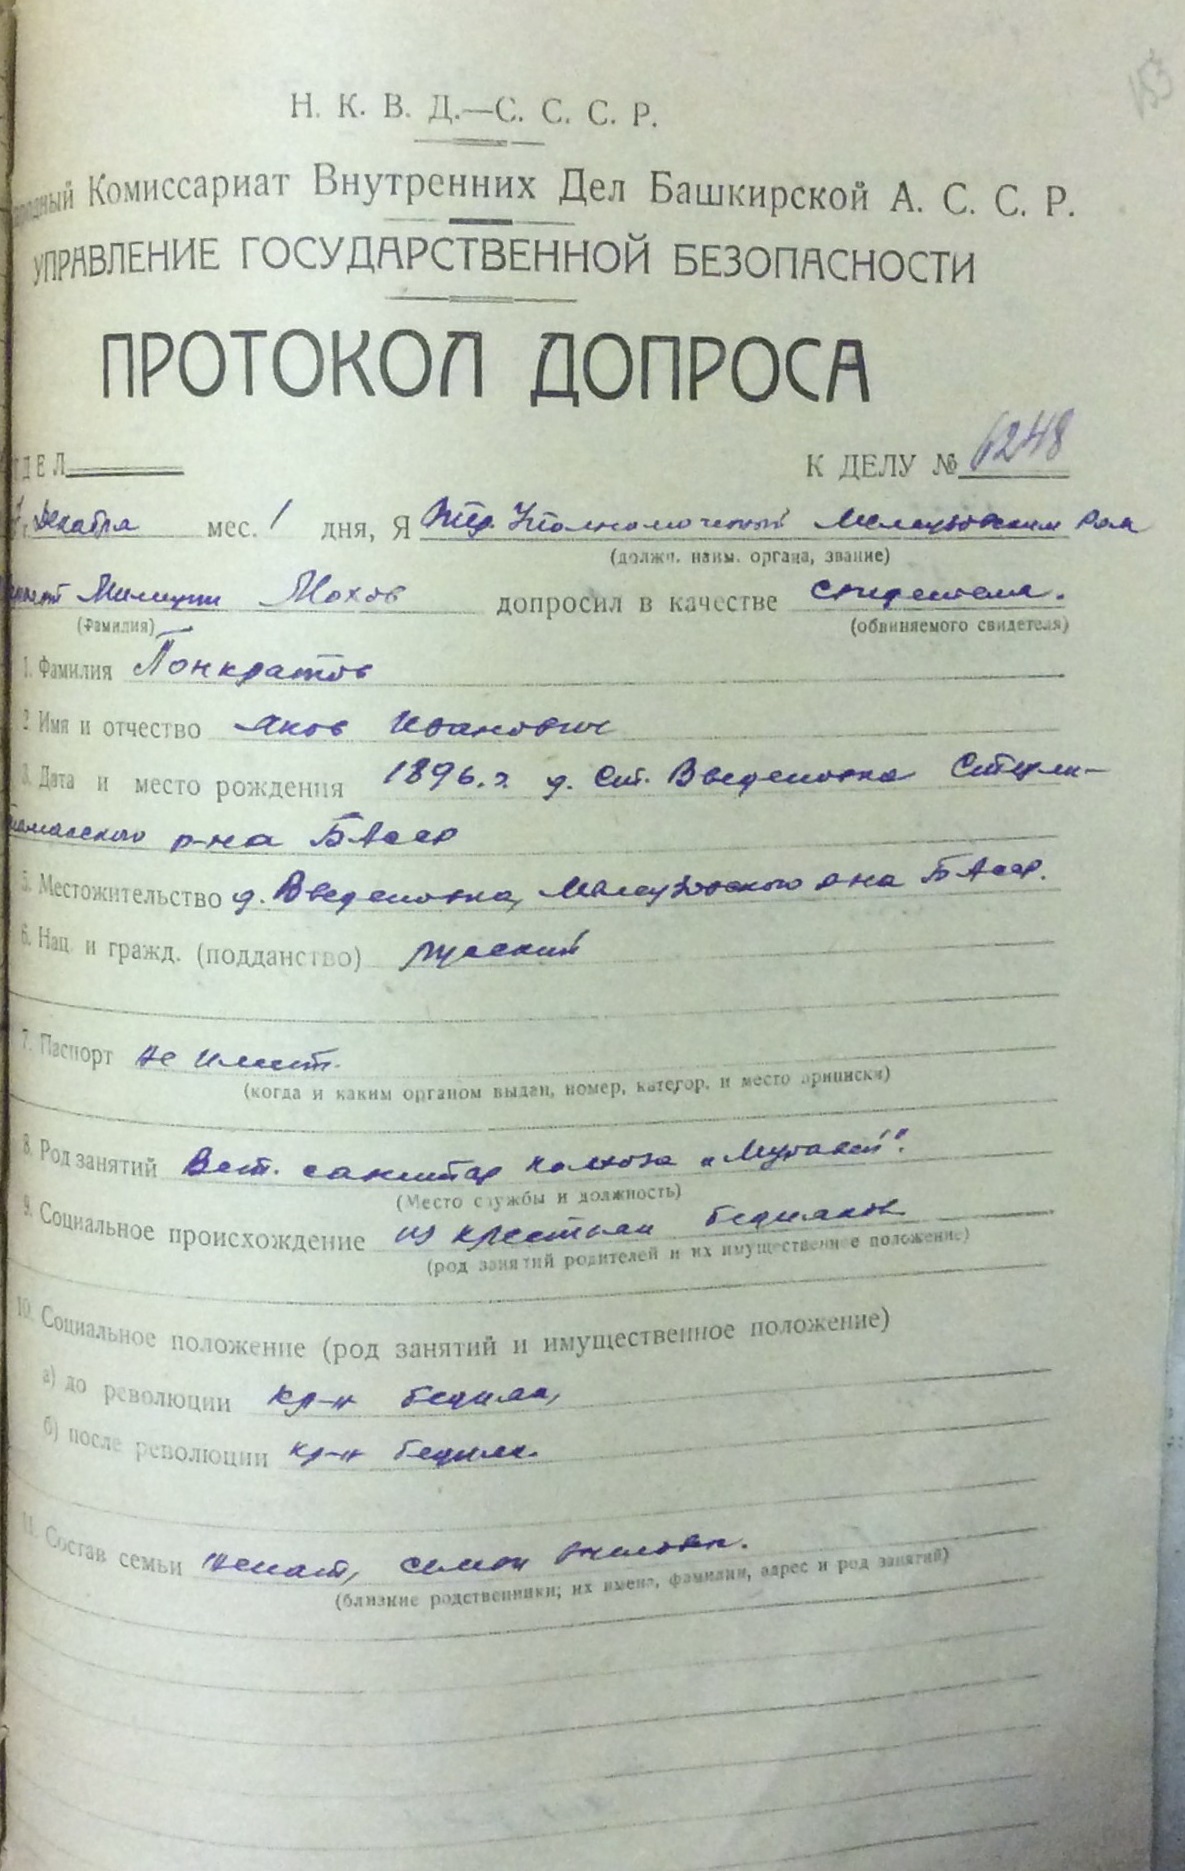 153
Н. К. В. Д.—С. С. С. Р.
Комиссариат Внутренних Дел Башкирской А. С. С. Р.
УПРАВЛЕНИЕ ГОСУДАРСТВЕННОЙ БЕЗОПАСНОСТИ
ПРОТОКОЛ ДОПРОСА
ДЕЛ К ДЕЛУ № 6248
Декабря мес. 1 дня, Я Уполномоченный Мелеузовским
(должн. наим. органа, звание)
Милиции Мохов допросил в качестве свидетеля.
(Фамилия) (обвиняемого свидетеля)
1. Фамилия Понкратов
2. Имя и отчество Яков Иванович
3. Дата и место рождения 1896.г. д. Введеновка Стерли-
тамакского р-на БАССР
5. Местожительство д. Введеновка, Мелеузовского р-на БАССР.
6. Нац. и гражд. (подданство) русский
7. Паспорт не имеет.
(когда и каким органом выдан, номер, категор. и место приписки)
8. Род занятий Вет. санитар колхоза
(Место службы и должность)
9. Социальное происхождение из крестьян бедняков
(род занятий родителей и их имущественное положение)
10. Социальное положение (род занятий и имущественное положение)
а) до революции кр-н бедняк,
б) после революции кр-н бедняк.
11. Состав семьи женат, семи
(близкие родственники; их имена, фамилии, адрес и род занятий)